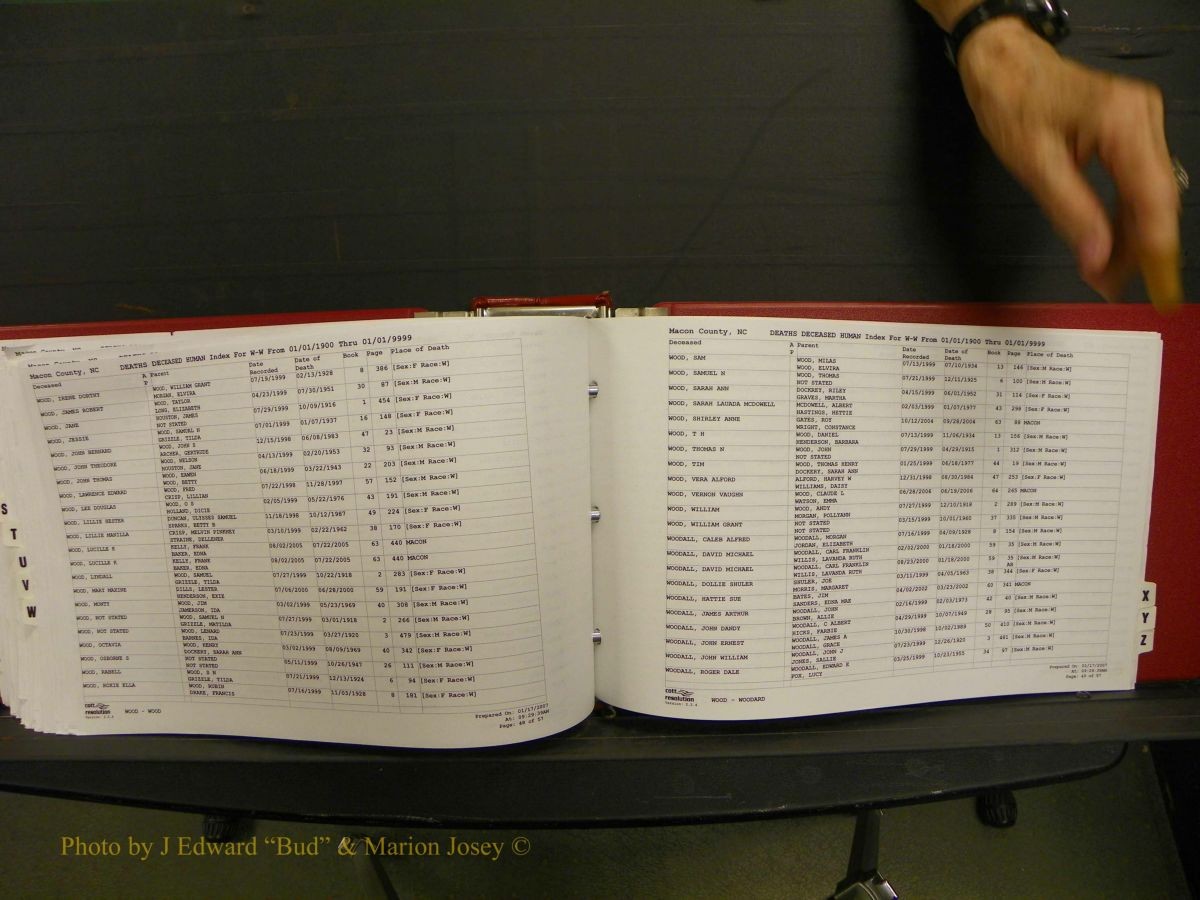 Macon County, NC DEATHS DECEASED HUMAN Index For W-W From 01/01/1900 Thru 01/01/9999
Deceased A P Parent Date Recorded Date of Death Book Page Place of Death
WOOD, IRENE DORTHY WOOD, WILLIAM GRANT 07/19/1999 02/13/1928 8 386 [Sex:F Race:W]
MORGAN, ELVIRA
WOOD, JAMES ROBERT WOOD, TAYLOR 04/23/1999 07/30/1951 30 87 [Sex:M Race:W]
LONG, ELIZABETH
WOOD, JANE HOUSTON, JAMES 07/29/1999 10/09/1916 1 454 [Sex:F Race:W]
NOT STATED
WOOD, JESSIE WOOD, SAMUEL N 07/01/1999 01/07/1937 16 148 [Sex:F Race:W]
GRIZZLE, TILDA
WOOD, JOHN BERNARD WOOD, JOHN S 12/15/1998 06/08/1983 47 23 [Sex:M Race:W]
ARCHER, GERTRUDE
WOOD, JOHN THEODORE WOOD, NELSON 04/13/1999 02/20/1953 32 93 [Sex:M Race:W]
HOUSTON, JANE
WOOD, JOHN THOMAS WOOD, EAMEN 06/18/1999 03/22/1943 22 203 [Sex:M Race:W]
WOOD, BETTY
WOOD, LAWRENCE EDWARD WOOD, FRED 07/22/1998 11/28/1997 57 152 [Sex:M Race:W]
CRISP, LILLIAN
WOOD, LEE DOUGLAS WOOD, O S 02/05/1999 05/22/1976 43 191 [Sex:M Race:W]
HOLLAND, DICIE
WOOD, LILLIE HESTER DUNCAN, ULYSSES SAMUEL 11/18/1998 10/12/1987 49 224 [Sex:F Race:W]
SPARKS, BETTY B
WOOD, LILLIE MANILLA CRISP, MELVIN PINKNEY 03/10/1999 02/22/1962 38 170 [Sex:F Race:W]
STRAINE, DELLENER
WOOD, LUCILLE K KELLY, FRANK 08/02/2005 07/22/2005 63 440 MACON
BAKER, EDNA
WOOD, LUCILLE K KELLY, FRANK 08/02/2005 07/22/2005 63 440 MACON
BAKER, EDNA
WOOD, LYNDALL WOOD, SAMUEL 07/27/1999 10/22/1918 2 283 [Sex:F Race:W]
GRIZZLE, TILDA
WOOD, MARY MAXINE DILLS, LESTER 07/06/2000 06/28/2000 59 191 [Sex:F Race:W]
HENDERSON, EXIE
WOOD, MONTY WOOD, JIM 03/02/1999 05/23/1969 40 308 [Sex:M Race:W]
JAMERSON, IDA
WOOD, NOT STATED WOOD, SAMUEL N 07/27/1999 03/01/1918 2 266 [Sex:M Race:W]
GRIZZLE, MATILDA
WOOD, NOT STATED WOOD, LENARD 07/23/1999 03/27/1920 3 479 [Sex:M Race:W]
BARNES, IDA
WOOD, OCTAVIA WOOD, HENRY 03/02/1999 08/09/1969 40 342 [Sex:F Race:W]
DOCKERY, SARAH ANN
WOOD, OSBORNE S NOT STATED 05/11/1999 10/26/1947 26 111 [Sex:M Race:W]
NOT STATED
WOOD, RABELL WOOD, S N 07/21/1999 12/13/1924 6 94 [Sex:F Race:W]
GRIZZLE, TILDA
WOOD, ROXIE ELLA WOOD, ROBIN 07/16/1999 11/03/1928 8 181 [Sex:F Race:W]
DRAKE, FRANCIS
cott resolution
WOOD - WOOD
Prepared On: 01/17/2007
At: 09:29:39AM
Page: 48 of 57
S
T
U
V
W
Macon County, NC DEATHS DECEASED HUMAN Index For W-W From 01/01/1900 Thru 01/01/9999
Deceased A P Parent Date Recorded Date of Death Book Page Place of Death
WOOD, SAM WOOD, MILAS 07/13/1999 07/10/1934 13 146 [Sex:M Race:W]
WOOD, ELVIRA
WOOD, SAMUEL N WOOD, THOMAS 07/21/1999 12/11/1925 6 100 [Sex:M Race:W]
NOT STATED
WOOD, SARAH ANN DOCKREY, RILEY 04/15/1999 06/01/1952 31 114 [Sex:F Race:W]
GRAVES, MARTHA
WOOD, SARAH LAUADA MCDOWELL MCDOWELL, ALBERT 02/03/1999 01/07/1977 43 298 [Sex:F Race:W]
HASTINGS, HETTIE
WOOD, SHIRLEY ANNE GATES, ROY 10/12/2004 09/28/2004 63 88 MACON
WRIGHT, CONSTANCE
WOOD, T H WOOD, DANIEL 07/13/1999 11/06/1934 13 156 [Sex:M Race:W]
HENDERSON, BARBARA
WOOD, THOMAS N WOOD, JOHN 07/29/1999 04/29/1915 1 312 [Sex:M Race:W]
NOT STATED
WOOD, TIM WOOD, THOMAS HENRY 01/25/1999 06/18/1977 44 19 [Sex:M Race:W]
DOCKERY, SARAH ANN
WOOD, VERA ALFORD ALFORD, HARVEY W 12/31/1998 08/30/1984 47 253 [Sex:F Race:W]
WILLIAMS, DAISY
WOOD, VERNON VAUGHN WOOD, CLAUDE L 06/28/2006 06/19/2006 64 265 MACON
WATSON, EMMA
WOOD, WILLIAM WOOD, ANDY 07/27/1999 12/10/1918 2 289 [Sex:M Race:W]
MORGAN, POLLYANN
WOOD, WILLIAM GRANT NOT STATED 03/15/1999 10/01/1960 37 335 [Sex:M Race:W]
NOT STATED
WOODALL, CALEB ALFRED WOODALL, MORGAN 07/16/1999 04/09/1928 8 154 [Sex:M Race:W]
JORDAN, ELIZABETH
WOODALL, DAVID MICHAEL WOODALL, CARL FRANKLIN 02/02/2000 01/18/2000 59 35 [Sex:M Race:W]
WILLIS, LAVANDA RUTH
WOODALL, DAVID MICHAEL WOODALL, CARL FRANKLIN 08/23/2000 01/18/2000 59 35 [Sex:M Race:W]
WILLIS, LAVANDA RUTH
WOODALL, DOLLIE SHULER SHULER, JOE 03/11/1999 04/05/1963 38 344 [Sex:F Race:W]
MORRIS, MARGARET
WOODALL, HATTIE SUE BATES, JIM 04/02/2002 03/23/2002 60 341 MACON
SANDERS, EDNA MAE
WOODALL, JAMES ARTHUR WOODALL, JOHN 02/16/1999 02/03/1973 42 40 [Sex:M Race:W]
BROWN, ALLIE
WOODALL, JOHN DANDY WOODALL, C ALBERT 04/29/1999 10/07/1949 28 95 [Sex:M Race:W]
HICKS, FARBIE
WOODALL, JOHN ERNEST WOODALL, JAMES A 10/30/1998 10/02/1989 50 410 [Sex:M Race:W]
WOODALL, GRACE
WOODALL, JOHN WILLIAM WOODALL, JOHN J 07/23/1999 12/26/1920 3 481 [Sex:M Race:W]
JONES, SALLIE
WOODALL, ROGER DALE WOODALL, EDWARD E 03/25/1999 10/23/1955 34 97 [Sex:M Race:W]
FOX, LUCY
cott resolution
WOOD - WOODARD
Prepared On: 01/17/2007
At: 09:29:39AM
Page: 49 of 57
X
Y
Z
Photo by J Edward “Bud” & Marion Josey ©